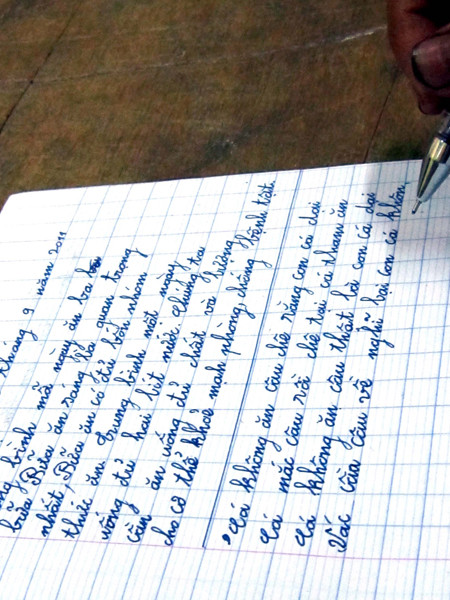 tháng 9 năm 2011
bình mỗi ngày ăn ba
bữa, Bữa ăn sáng là quan trọng
nhất, Bữa ăn có đủ bốn nhóm
thức ăn. Trung bình mỗi ngày
uống đủ hai lít nước. chúng ta
cần ăn uống đủ chất và lượng
cho cơ thể khỏe mạnh phòng chống bệnh tật.
Cá không ăn câu chê rằng con cá dại
Cá mắc câu rồi chê tại cá tham ăn
Cá không ăn câu thật là con cá dại
Vác cần câu về nghĩ lại con cá khôn